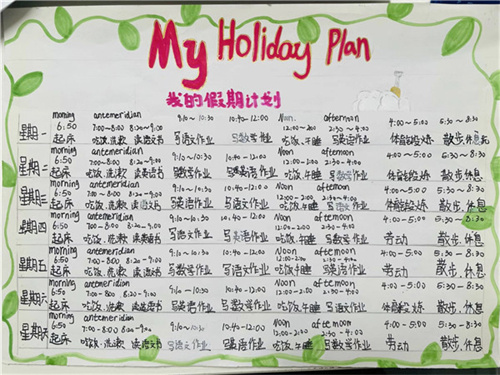 My Holiday Plan
我的假期计划
morning antemeridian 9:10~10:30 10:40~12:00 Noon. afternoon 4:00~5:00 5:30~8:30
星期一 6:50 7:00~8:00 8:20~9:00 12:00~2:00 2:30~4:00
起床 吃饭.洗漱 读语文书 写语文作业 写数学作业 吃饭.午睡 写英语作业 体育锻炼 散步.休息
morning antemeridian 9:10~10:30 10:40~12:00 Noon afternoon 4:00~5:00 5:30~8:30
星期二 6:50 7:00~8:00 8:20~9:00 12:00~2:00 2:30~4:00
起床 吃饭.洗漱 读英语书 写数学作业 写英语作业 吃饭.午睡 写数学作业 体育锻炼 散步.休息
morning antemeridian 9:10~10:30 10:40~12:00 Noon afternoon 4:00~5:00 5:30~8:30
星期三 6:50 7:00~8:00 8:20~9:00 12:00~2:00 2:30~4:00
起床 吃饭.洗漱 读语文书 写英语作业 写语文作业 吃饭.午睡 体育锻炼 散步.休息
morning antemeridian 9:10~10:30 10:40~12:00 Noon afternoon 4:00~5:00 5:30~8:30
星期四 6:50 7:00~8:00 8:20~9:00 12:00~2:00 2:30~4:00
起床 吃饭.洗漱 读英语书 写语文作业 写英语作业 吃饭.午睡 写数学作业 劳动 散步.休息
morning antemeridian 9:10~10:30 10:40~12:00 Noon afternoon 4:00~5:00 5:30~8:30
星期五 6:50 7:00~8:00 8:20~9:00 12:00~2:00 2:30~4:00
起床 吃饭.洗漱 读语文书 写数学作业 写语文作业 吃饭.午睡 写英语作业 劳动 散步.休息
morning antemeridian 9:10~10:30 10:40~12:00 Noon afternoon 4:00~5:00 5:30~8:30
星期六 6:50 7:00~8:00 8:20~9:00 12:00~2:00 2:30~4:00
起床 吃饭.洗漱 读英语书 写英语作业 写数学作业 吃饭.午睡 写语文作业 体育锻炼 散步.休息
morning antemeridian 9:10~10:30 10:40~12:00 Noon afternoon 4:00~5:00 5:30~8:30
星期 6:50 7:00~8:00 8:20~9:00 12:00~2:00 2:30~4:00
起床 吃饭.洗漱 读语文书 写语文作业 写英语作业 吃饭.午睡 写数学作业 劳动 散步.休息